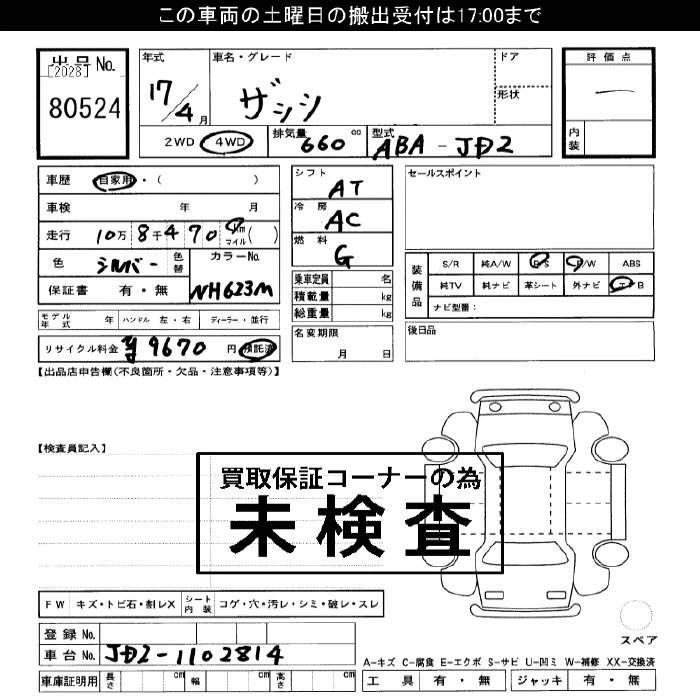 この車両の土曜日の搬出受付は17:00まで
出品No.
[2028]
80524
年式
17/4月
車名・グレード
ザッツ
ドア
形状
評価点
―
内装
2WD 4WD
排気量 660 cc
型式 ABA-JD2
車歴 自家用・( )
車検 年 月
走行 10万8千470 km マイル ( )
色 シルバー 色替
カラーNo. NH623M
保証書 有・無
シフト AT
冷房 AC
燃料 G
乗車定員 名
積載量 kg
総重量 kg
名変期限 月 日
セールスポイント
装備品
S/R 純A/W P/S P/W ABS
純TV 純ナビ 革シート 外ナビ エアB
ナビ型番:
後日品
モデル年式 年 ハンドル 左・右 ディーラー・並行
リサイクル料金 ¥9670 円 預託済
【出品店申告欄(不良箇所・欠品・注意事項等)】
【検査員記入】
買取保証コーナーの為
未検査
FW キズ・トビ石・割レX シート内装 コゲ・穴・汚レ・シミ・破レ・スレ
登録No.
車台No. JD2-1102814
車庫証明用 長さ cm 幅 cm 高さ cm
スペア
A-キズ C-腐食 E-エクボ S-サビ U-凹ミ W-補修 XX-交換済
工具 有・無 ジャッキ 有・無